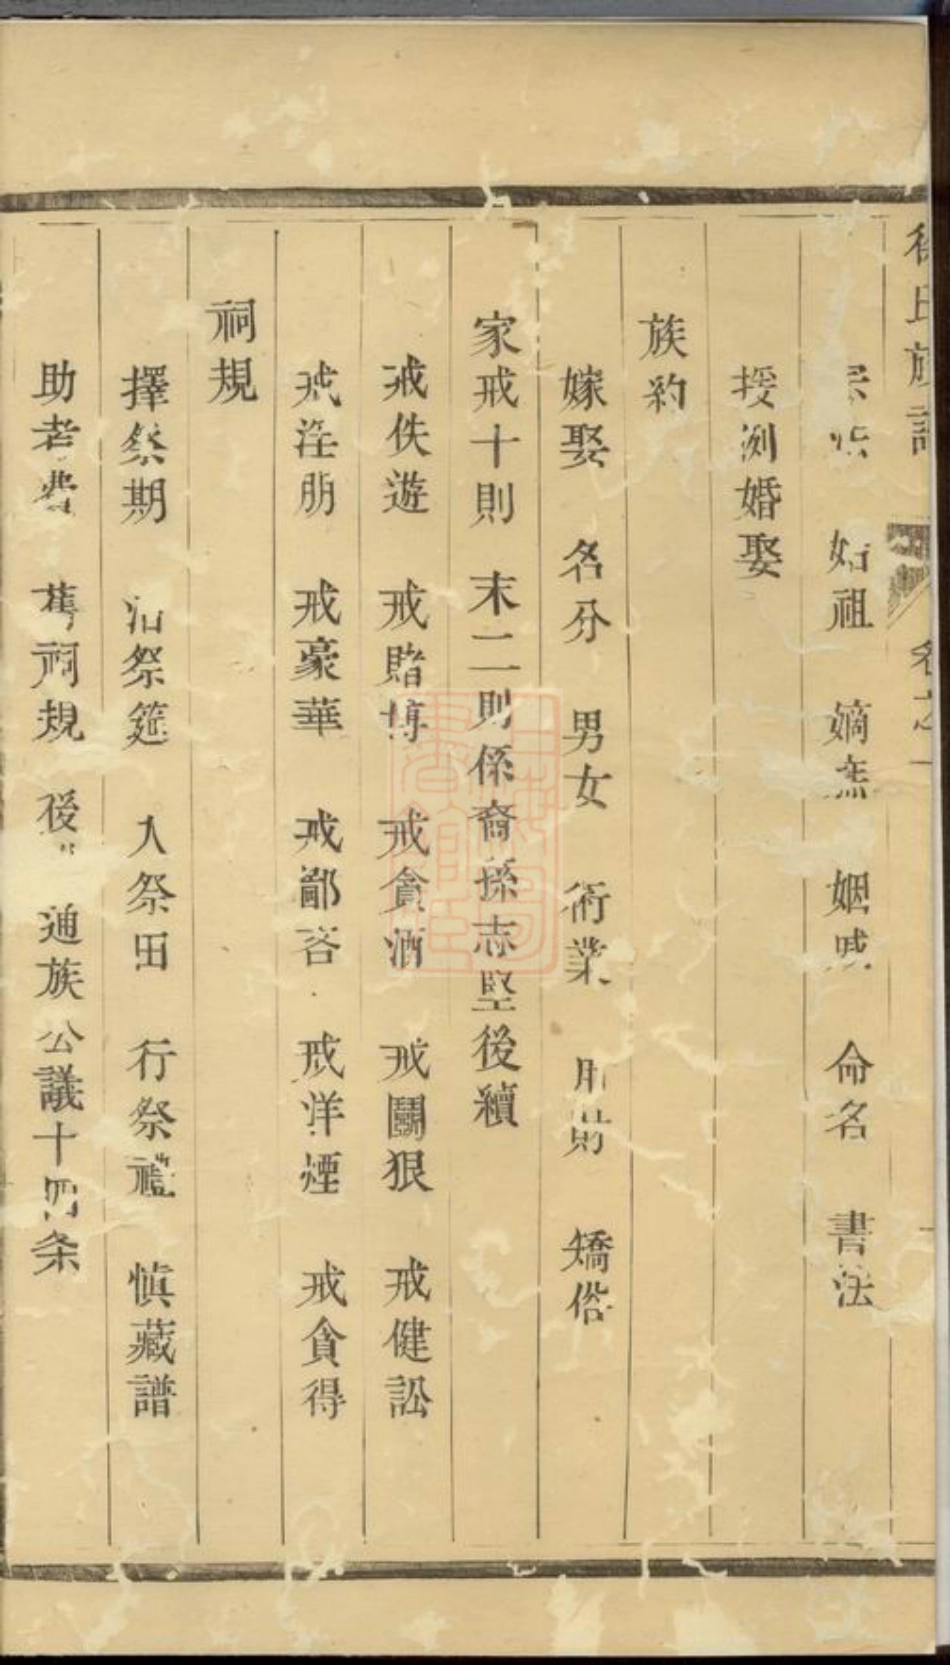 徐氏族譜 卷之一
宗法 始祖 嫡庶 姻戚 命名 書法
授例婚娶
族約
嫁娶 名分 男女 術業 財 矯俗
家戒十則 末二則係裔孫志堅後續
戒佚遊 戒賭博 戒貪酒 戒鬭狠 戒健訟
戒淫朋 戒豪華 戒鄙吝 戒洋煙 戒貪得
祠規
擇祭期 治祭筵 入祭田 行祭禮 慎藏譜
助考費 舊祠規 後 通族公議十四条